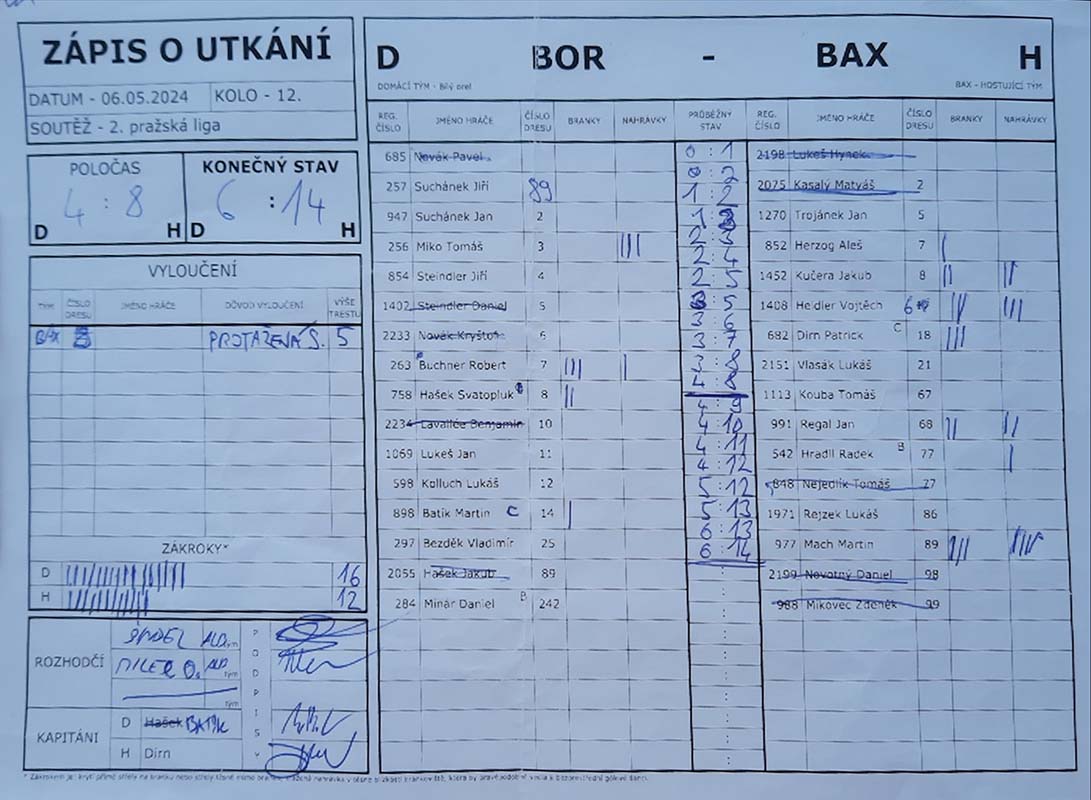 ZÁPIS O UTKÁNÍ
DATUM - 06.05.2024 KOLO - 12.
SOUTĚŽ - 2. pražská liga
POLOČAS KONEČNÝ STAV
4 : 8 6 : 14
D H D H
VYLOUČENÍ
TÝM ČÍSLO DRESU JMÉNO HRÁČE DŮVOD VYLOUČENÍ VÝŠE TRESTU
BAX PROTAŽENÁ S. 5
ZÁKROKY*
D 16
H 12
ROZHODČÍ
ALD tým
MILER O. ALD tým
tým
PODPISY
KAPITÁNI
D Hašek BATÍK
H Dirn
D BOR - BAX H
DOMÁCÍ TÝM - Bílý orel BAX - HOSTUJÍCÍ TÝM
REG. ČÍSLO JMÉNO HRÁČE ČÍSLO DRESU BRANKY NAHRÁVKY PRŮBĚŽNÝ STAV REG. ČÍSLO JMÉNO HRÁČE ČÍSLO DRESU BRANKY NAHRÁVKY
685 Novák Pavel
257 Suchánek Jiří 89
947 Suchánek Jan 2
256 Miko Tomáš 3 III
854 Steindler Jiří 4
1402 Steindler Daniel 5
2233 Novák Kryštof 6
263 Buchner Robert 7 III I
758 Hašek Svatopluk 8 II
2234 Lavallée Benjamin 10
1069 Lukeš Jan 11
598 Kolluch Lukáš 12
898 Batík Martin C 14 I
297 Bezděk Vladimír 25
2055 Hašek Jakub 89
284 Minár Daniel B 242
0 : 1
0 : 2
1 : 2
1 : 3
2 : 3
2 : 4
2 : 5
3 : 5
3 : 6
3 : 7
3 : 8
4 : 8
4 : 9
4 : 10
4 : 11
4 : 12
5 : 12
5 : 13
6 : 13
6 : 14
2198 Lukeš Hynek
2075 Kasalý Matyáš 2
1270 Trojánek Jan 5
852 Herzog Aleš 7 I
1452 Kučera Jakub 8 II II
1408 Heidler Vojtěch 6 II III
682 Dirn Patrick C 18 III
2151 Vlasák Lukáš 21
1113 Kouba Tomáš 67
991 Regal Jan 68 II II
542 Hradil Radek B 77 I
848 Nejedlík Tomáš 27
1971 Rejzek Lukáš 86
977 Mach Martin 89 III IIII
2199 Novotný Daniel 98
988 Mikovec Zdeněk 99